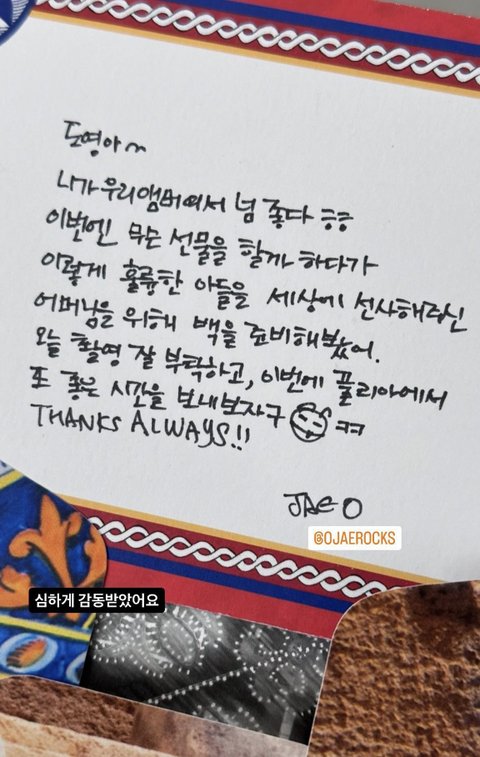 도영아~
니가 우리 앰버여서 넘 좋다 ㅎㅎ
이번엔 무슨 선물을 할까 하다가
이렇게 훌륭한 아들을 세상에 선사해주신
어머님을 위해 백을 준비해봤어.
오늘 촬영 잘 부탁하고, 이번에 풀리아에서
또 좋은 시간을 보내보자구 ㅋㅋ
THANKS ALWAYS!!
JAE O
@OJAEROCKS
심하게 감동받았어요